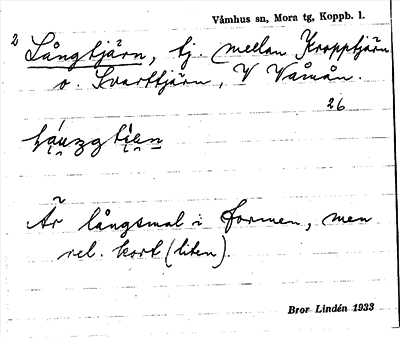 Våmhus sn, Mora tg, Koppb. l.
2 Långtjärn, tj. mellan Kropptjärn
o. Svarttjärn, V Våmån.
26
Är långsmal i formen, men
rel. kort (liten).
Bror Lindén 1933